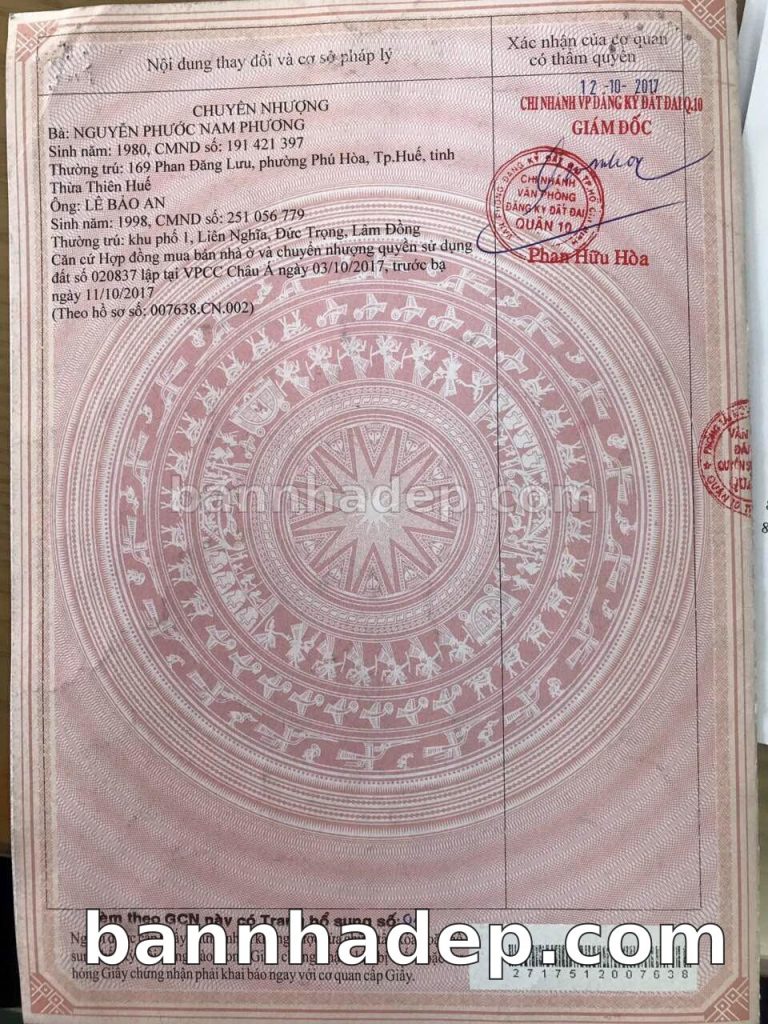 Nội dung thay đổi và cơ sở pháp lý
Xác nhận của cơ quan
có thẩm quyền
CHUYỂN NHƯỢNG
Bà: NGUYỄN PHƯỚC NAM PHƯƠNG
Sinh năm: 1980, CMND số: 191 421 397
Thường trú: 169 Phan Đăng Lưu, phường Phú Hòa, Tp.Huế, tỉnh
Thừa Thiên Huế
Ông: LÊ BẢO AN
Sinh năm: 1998, CMND số: 251 056 779
Thường trú: khu phố 1, Liên Nghĩa, Đức Trọng, Lâm Đồng
Căn cứ Hợp đồng mua bán nhà ở và chuyển nhượng quyền sử dụng
đất số 020837 lập tại VPCC Châu Á ngày 03/10/2017, trước bạ
ngày 11/10/2017
(Theo hồ sơ số: 007638.CN.002)
12 -10- 2017
CHI NHÁNH VP ĐĂNG KÝ ĐẤT ĐAI Q.10
GIÁM ĐỐC
CHI NHÁNH
VĂN PHÒNG
ĐĂNG KÝ ĐẤT ĐAI
QUẬN 10
Phan Hữu Hòa
bannhadep.com
theo GCN này có Trang bổ sung số:
bannhadep.com
hỏng Giấy chứng nhận phải khai báo ngay với cơ quan cấp Giấy.
2717512007638